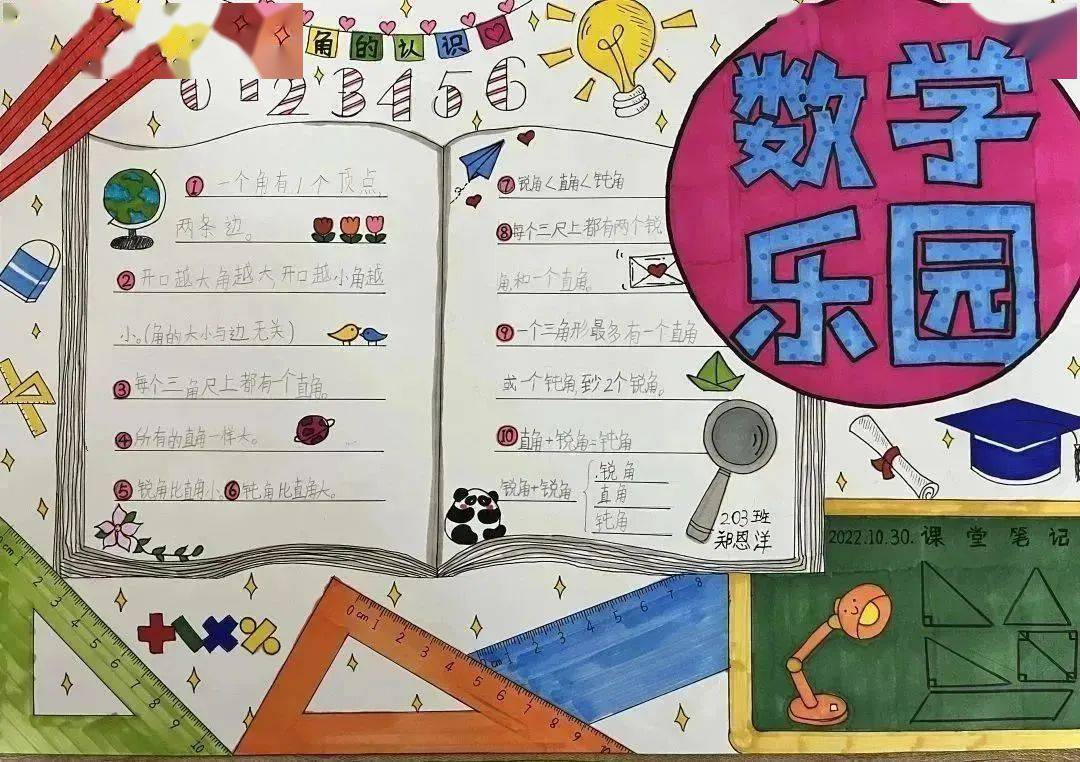 角的认识
0 1 2 3 4 5 6
数学
乐园
① 一个角有1个顶点,
两条边。
② 开口越大角越大,开口越小角越
小。(角的大小与边无关)
③ 每个三角尺上都有一个直角。
④ 所有的直角一样大。
⑤ 锐角比直角小。⑥ 钝角比直角大。
⑦ 锐角<直角<钝角
⑧ 每个三尺上都有两个锐
角和一个直角。
⑨ 一个三角形最多有一个直角
或一个钝角,至少2个锐角。
⑩ 直角+锐角=钝角
锐角+锐角
锐角
直角
钝角
203班
郑恩洋
2022.10.30. 课堂笔记
0 cm 1 2 3 4 5 6 7 8 9 10
1 2 3 4 5 6 7 8 9 10
cm 1 2 3 4 5 6 7 8